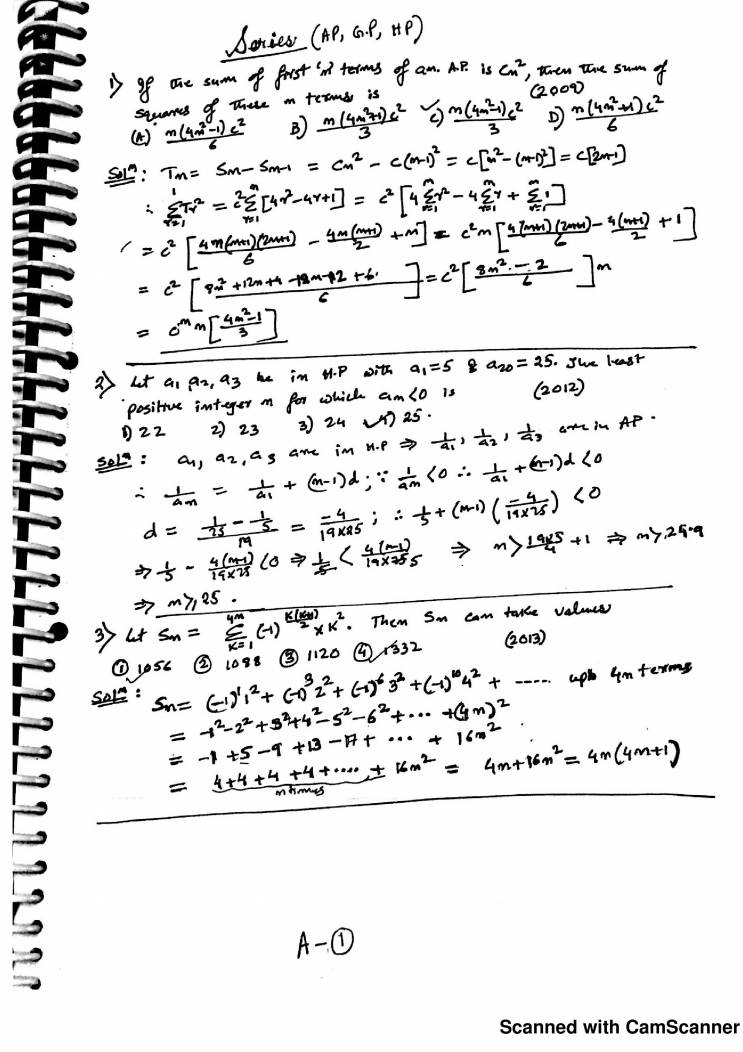 Series (AP, G.P, HP)
1) If the sum of first 'n' terms of an. A.P. is Cn², then the sum of
squares of these n terms is (2009)
(A) n(4n²-1)c²/6 B) n(4n²+1)c²/3 ✓C) n(4n²-1)c²/3 D) n(4n²+1)c²/6
Solⁿ: Tn = Sn - Sn-1 = Cn² - C(n-1)² = C[n² - (n-1)²] = C[2n-1]
= c² [4n(n+1)(2n+1)/6 - 4n(n+1)/2 + n] = c²n [4(n+1)(2n+1)/6 - 4(n+1)/2 + 1]
n[4n²-1/3]
2) Let a1, a2, a3 be in H.P with a1=5 & a20=25. The least
positive integer n for which an<0 is (2012)
1) 22 2) 23 3) 24 ✓4) 25.
Solⁿ: a1, a2, a3 are in H.P ⇒ 1/a1, 1/a2, 1/a3 are in AP.
∴ 1/an = 1/a1 + (n-1)d; ∵ 1/an < 0 ∴ 1/a1 + (n-1)d < 0
d = (1/25 - 1/5)/19 = -4/19×25; ∴ 1/5 + (n-1)(-4/19×25) < 0
⇒ 1/5 - 4(n-1)/19×25 < 0 ⇒ n > 19×5/4 + 1 ⇒
⇒ n ≥ 25.
3) Let Sn = 4n Σ K=1 (-1)^K(K+1)/2 × K². Then Sn can take values
① 1056 ② 1088 ③ 1120 ④ ✓1332 (2013)
Solⁿ: Sn = (-1)¹1² + (-1)³2² + (-1)⁶3² + (-1)¹⁰4² + ----- upto 4n terms
= -1²-2²+3²+4²-5²-6²+... +(4n)²
= -1 +5 -9 +13 -17+ ... + 16n²
= 4+4+4+4+..... + 16n² = 4n+16n² = 4n(4n+1)
n times
A-①
Scanned with CamScanner